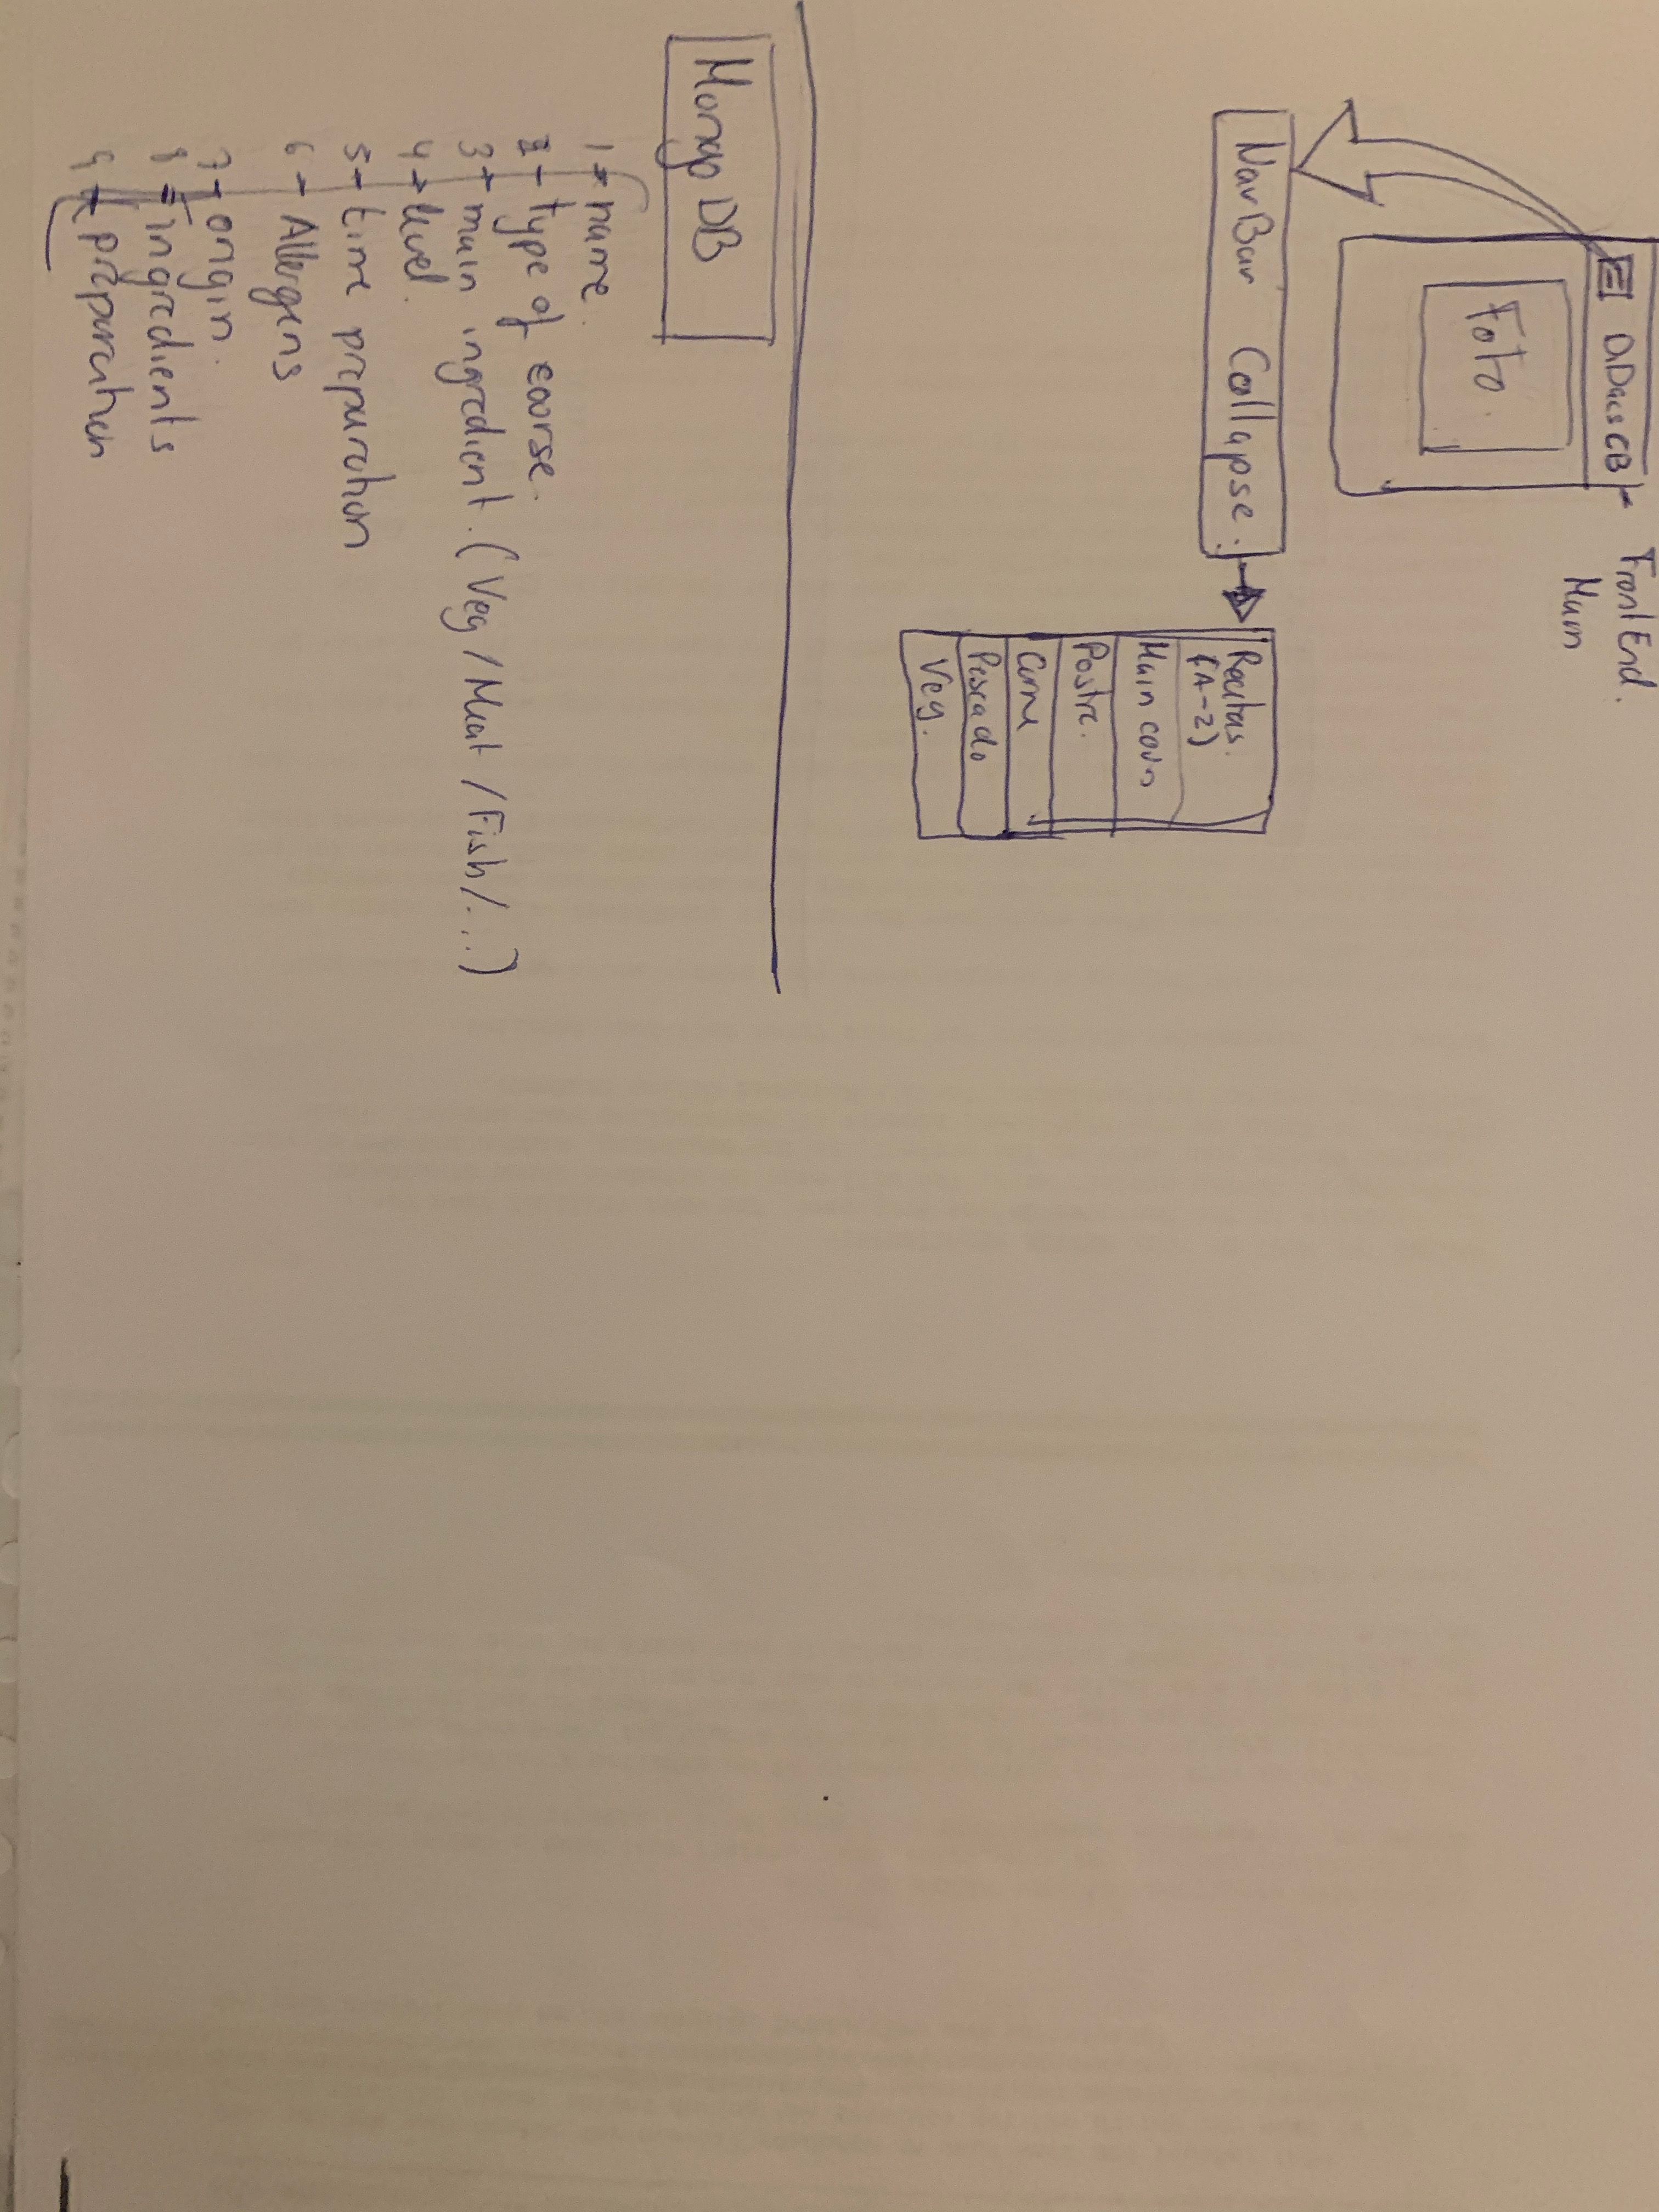 FrontEnd.
Main
Foto.
NavBar Collapse.
Recetas.
(A-Z)
Main cours
Postre.
Carne
Pescado
Veg.
Mongo DB
1 - name.
2 - type of course.
3 - main ingredient. (Veg / Meat / Fish / ...)
4 - level.
5 - time preparation
6 - Allergens
7 - origin.
8 - ingredients
9 - preparation